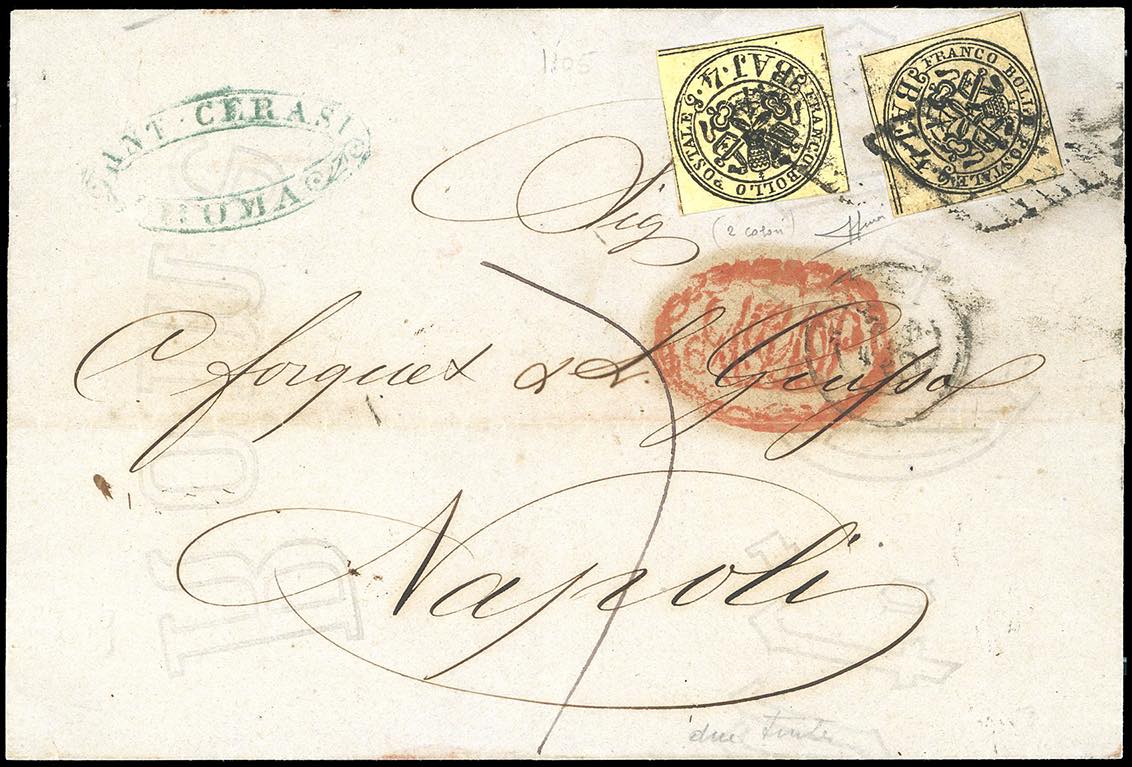 1105
ANT. CERASI
ROMA
BAJ. 4.
FRANCO BOLLO POSTALE
BAJ. 4.
FRANCO BOLLO POSTALE
(2 colori)
Sig
C. Forquet & L. Giusso
Napoli
due tinte